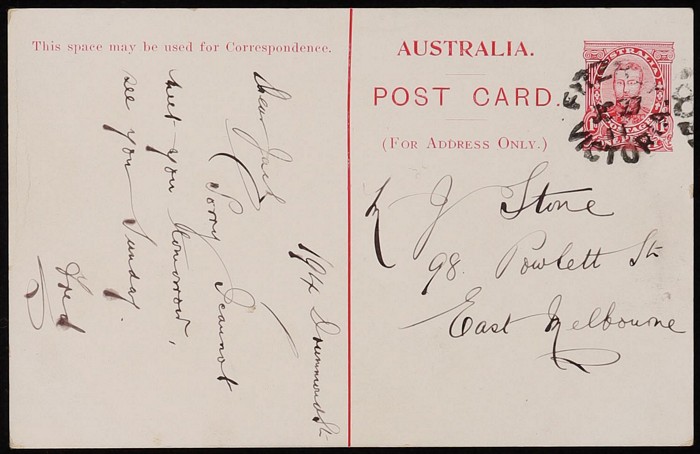 This space may be used for Correspondence.
194 Drummond St
Dear Jack
Sorry I cannot
meet you tomorrow,
see you Sunday.
Fred
AUSTRALIA.
POST CARD.
(For Address Only.)
AUSTRALIA
POSTAGE
VICTORIA
27
J Stone
98. Powlett St
East Melbourne